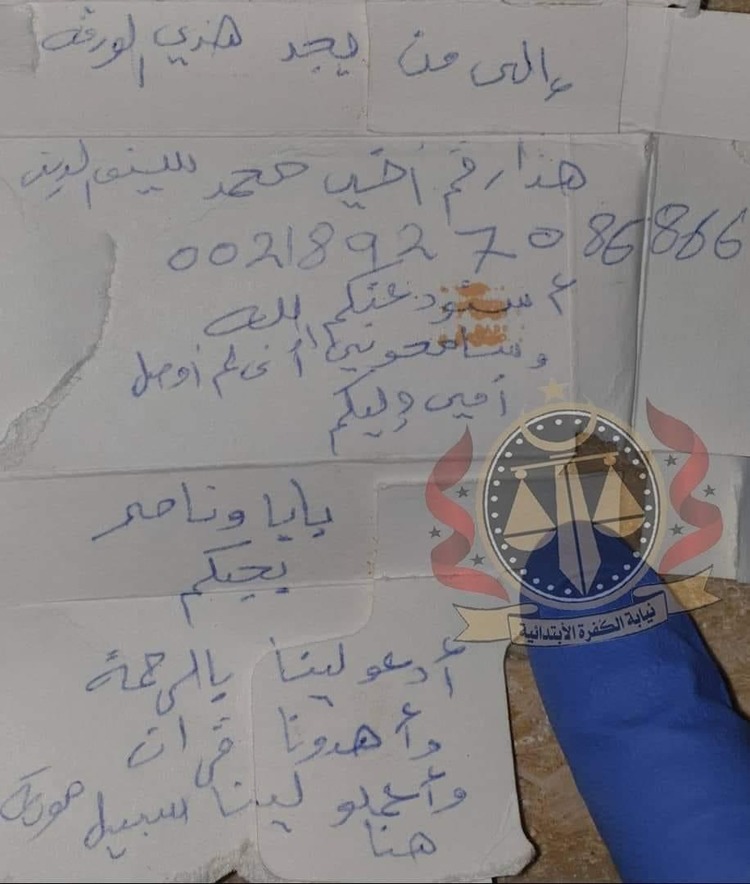 وإلى من يجد هذي الورقه
هذا رقم أخي محمد سيف الدين
00218927086866
أستودعتكم الله
وسامحوني أني لم أوصل
أمي وليكم
بابا وناصر
يحبكم
أدعو لينا بالرحمة
وأهدونا قرآن
وأعملو لينا سبيل مويه
هنا
نيابة الكفرة الأبتدائية